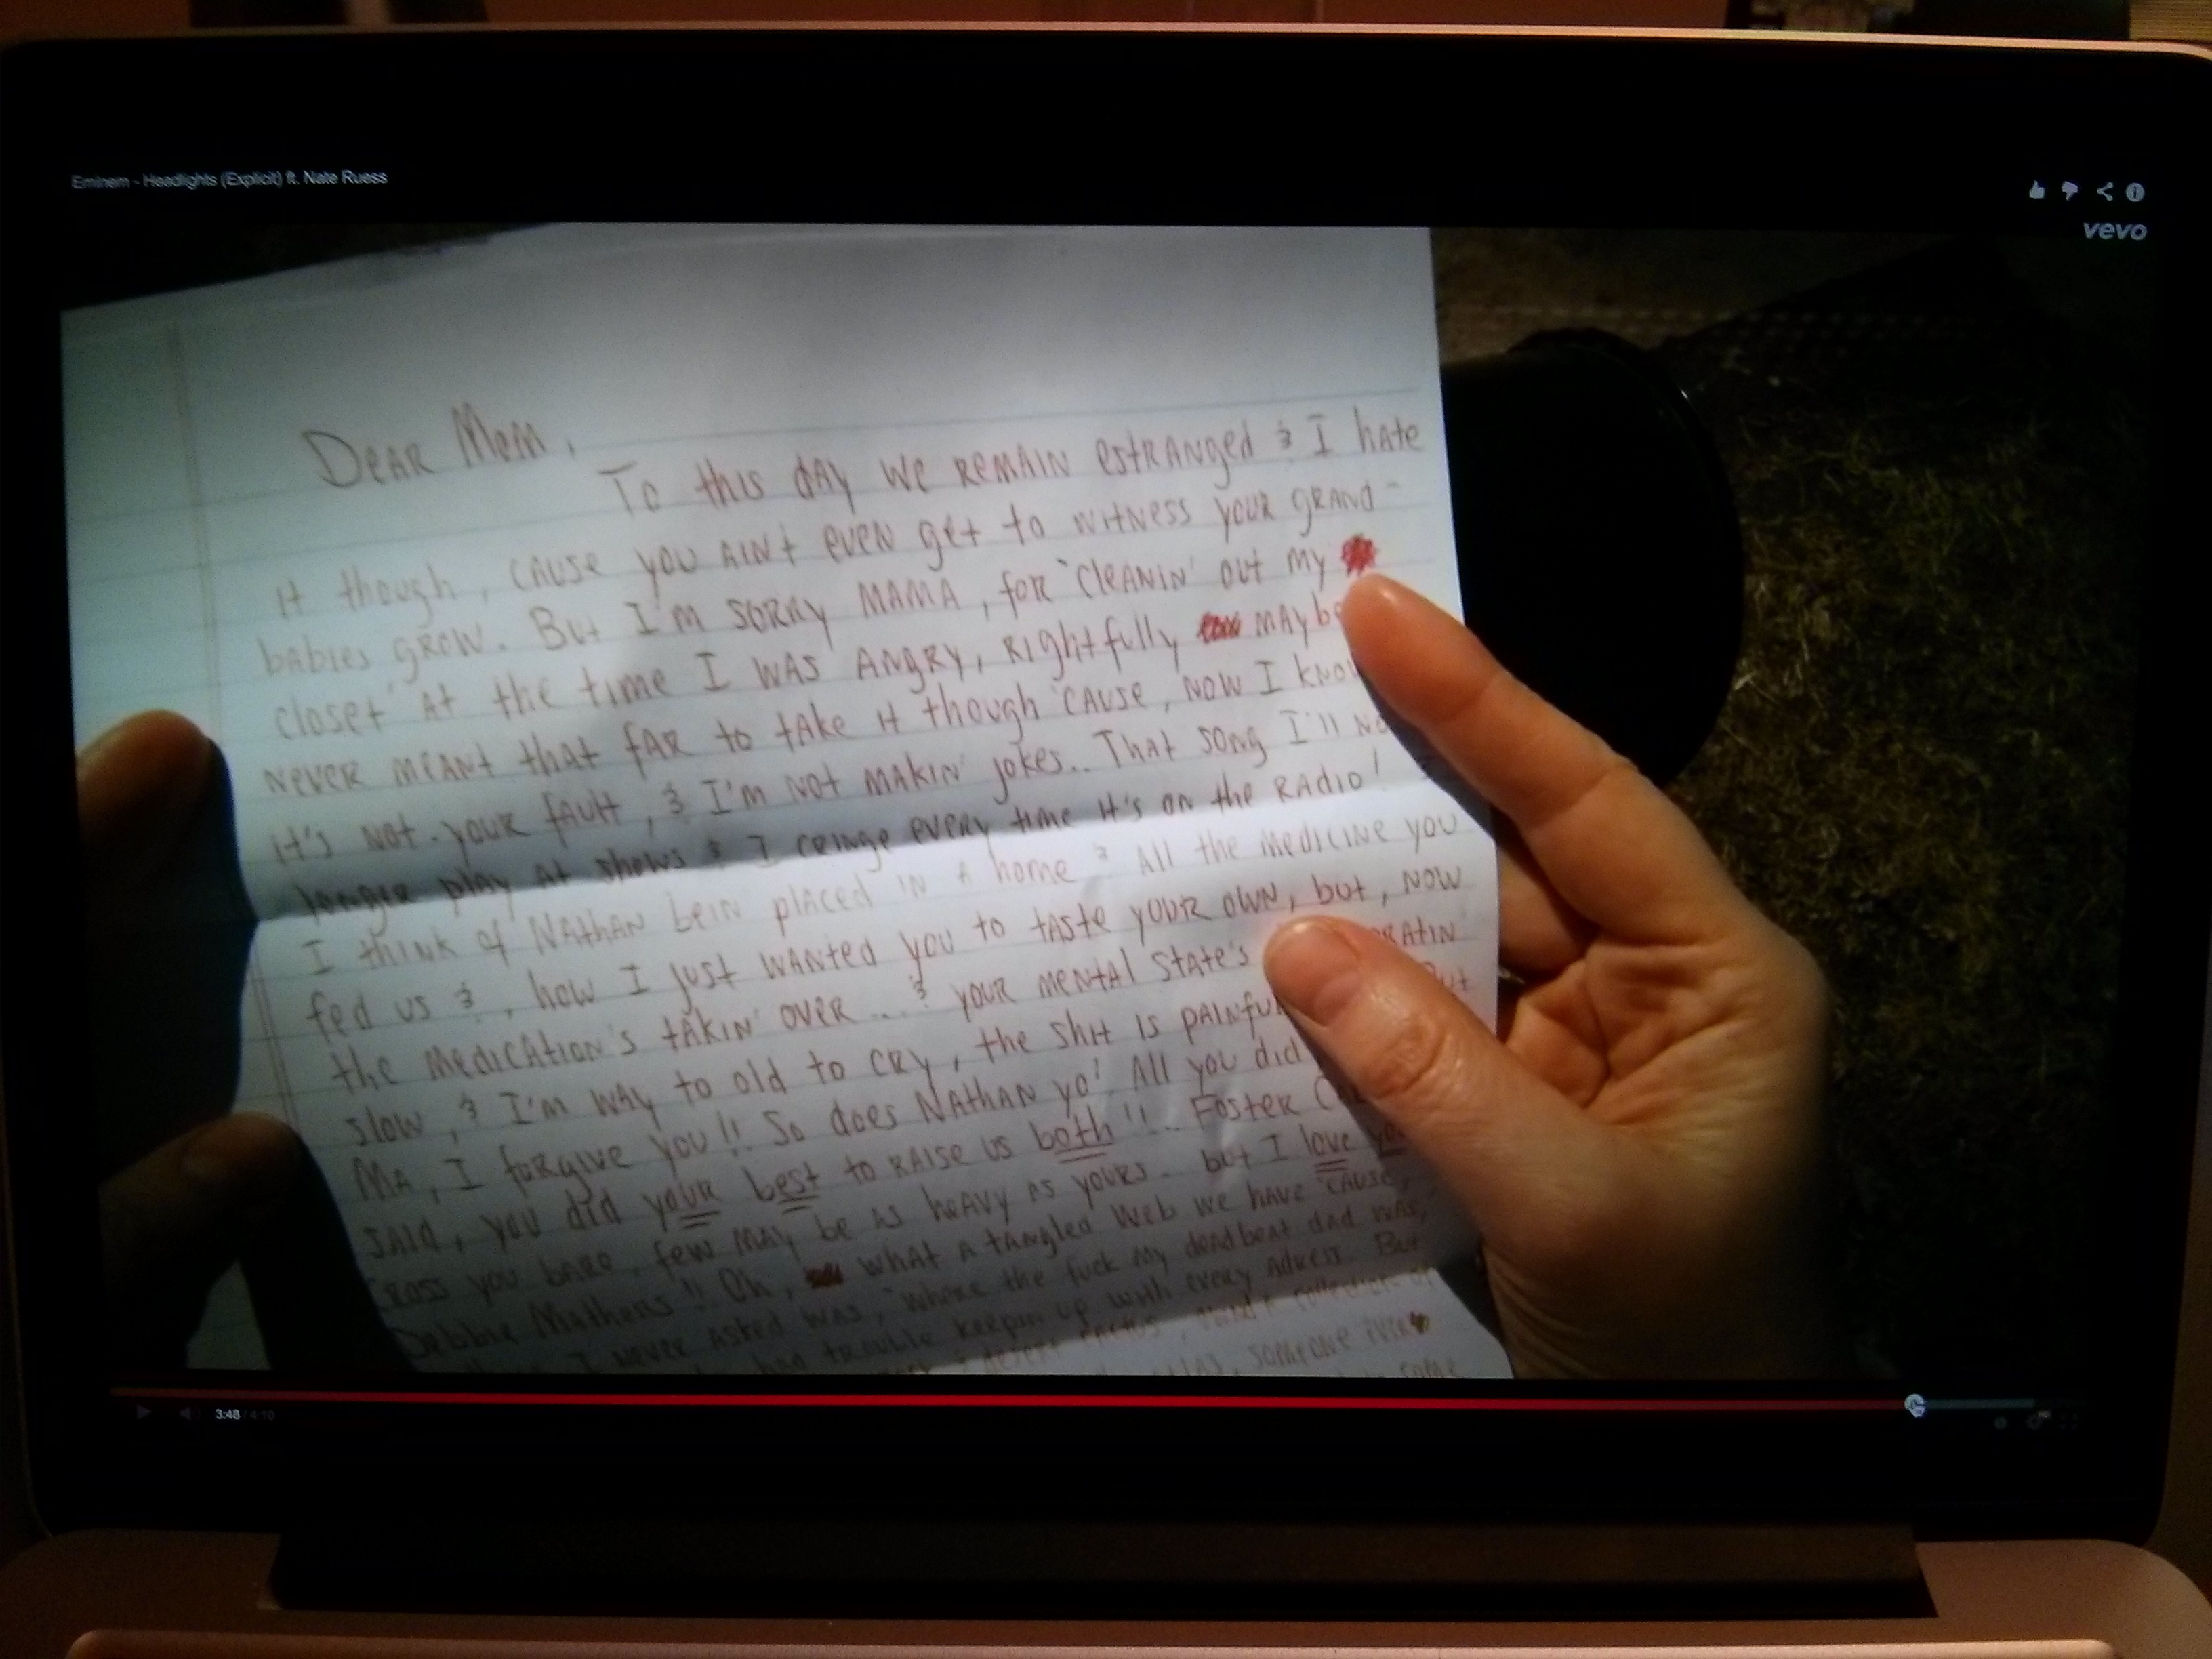 Eminem - Headlights (Explicit) ft. Nate Ruess
vevo
Dear Mom,
To this day we remain estranged & I hate
it though, cause you aint even get to witness your grand-
babies grow. But I'm sorry mama, for "cleanin' out my
closet' at the time I was angry, rightfully maybe
never meant that far to take it though 'cause, now I know
it's not your fault, & I'm not makin' jokes.. That song I'll no
longer play at shows & I cringe every time it's on the radio!
I think of Nathan bein' placed in a home & all the medicine you
fed us &, how I just wanted you to taste your own, but, now
the medication's takin' over... & your mental state's ratin'
slow, & I'm way to old to cry, the shit is painful but
Ma, I forgive you!! So does Nathan yo! All you did
said, you did your best to raise us both!!. Foster
cross you bare, few may be as heavy as yours. but I love
Debbie Mathers!! Oh, what a tangled web we have 'cause,
I never asked was, "where the fuck my deadbeat dad was,"
had trouble keepin up with every adress. But
collection of
someone ever
come
3:48 / 4:10